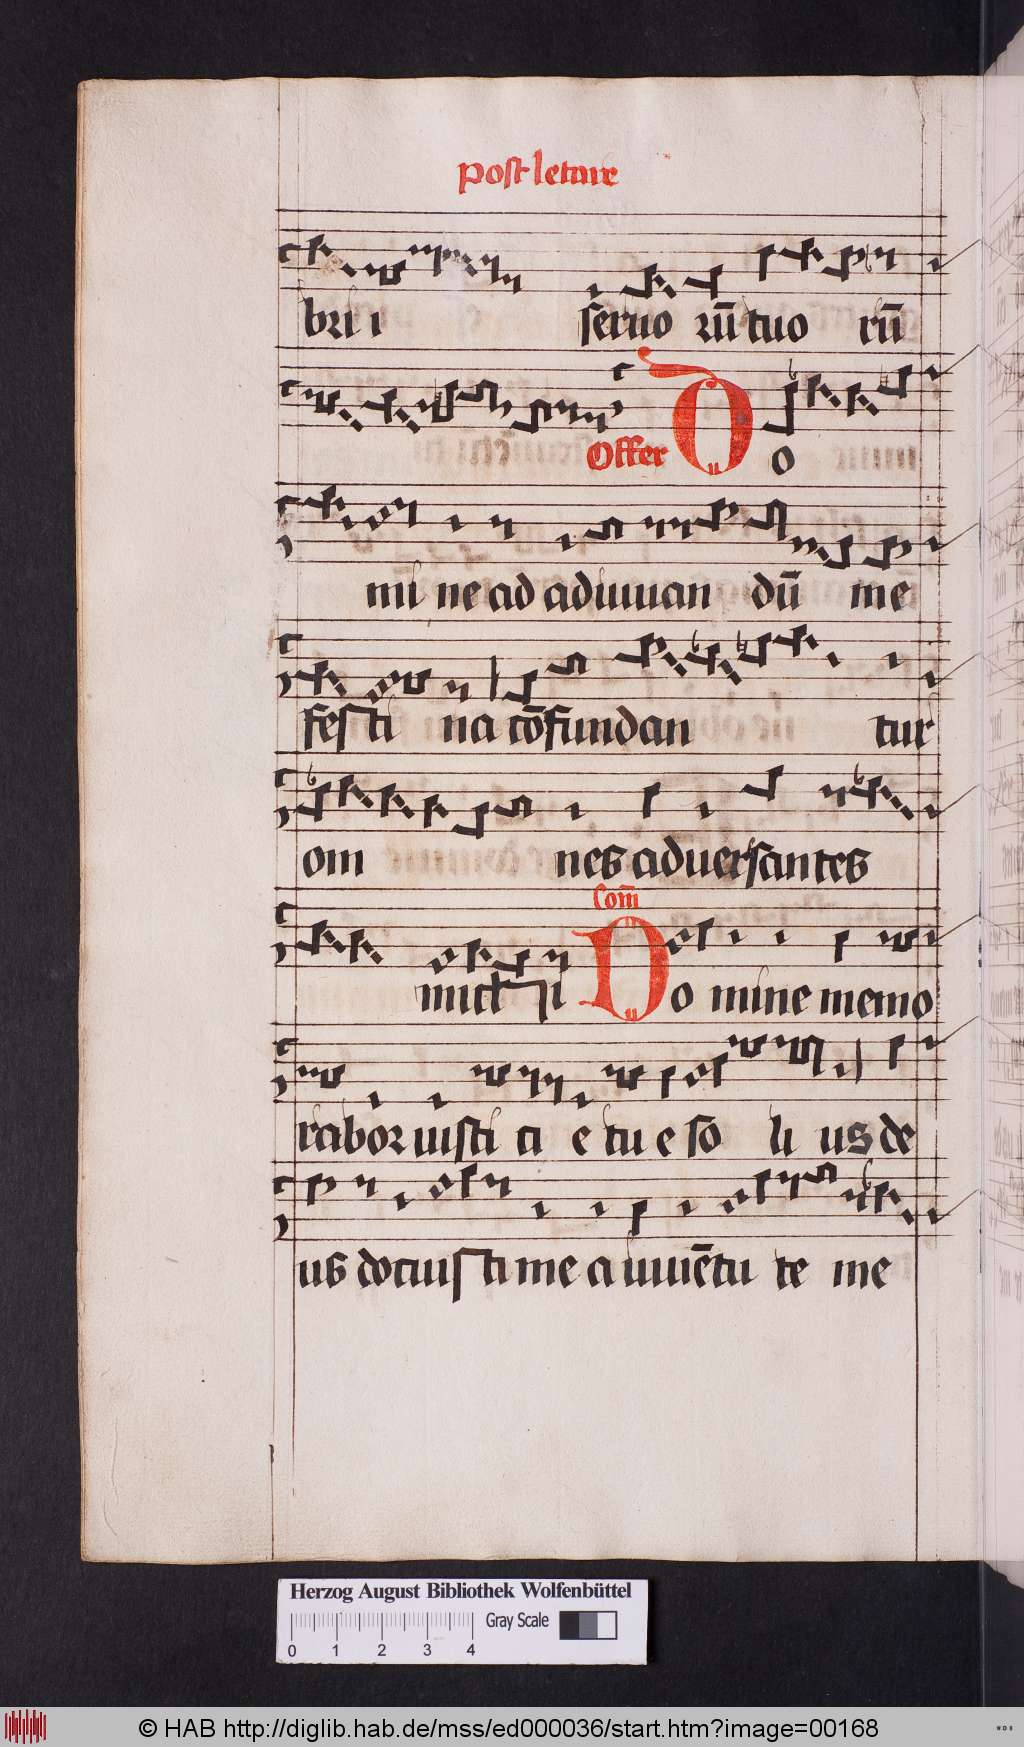 Post letare
bri i seruo rū tuo rū
Offer Do
mi ne ad adiuuan dū me
festi na cōfundan tur
om nes aduersantes
Com̄
michi Do mine memo
rabor iusti ti e tu e so li us de
us docuisti me a iuuētu te me
Herzog August Bibliothek Wolfenbüttel
Gray Scale
0 1 2 3 4
© HAB http://diglib.hab.de/mss/ed000036/start.htm?image=00168